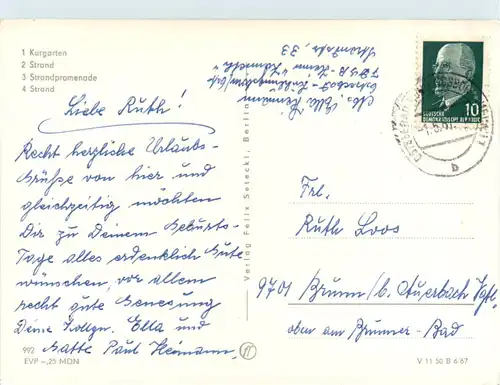 1 Kurgarten
2 Strand
3 Strandpromenade
4 Strand
Liebe Ruth!
Recht herzliche Urlaubs-
grüße von hier und
gleichzeitig möchten
Dir zu Deinem Geburts-
Tage alles erdenklich Gute
wünschen, vor allem
recht gute Genesung
Deine Kollgn. Ella und
Gatte Paul Hermann,
992
EVP -,25 MDN
Verlag Felix Setecki, Berlin
Abs. Ella Hermann
Strandstr. 33
10
DEUTSCHE
DEMOKRATISCHE REPUBLIK
b
Frl.
Ruth Loos
9701 Brunn/b. Auerbach Vgtl.
oben am Brunner-Bad
V 11 50 B 6/67